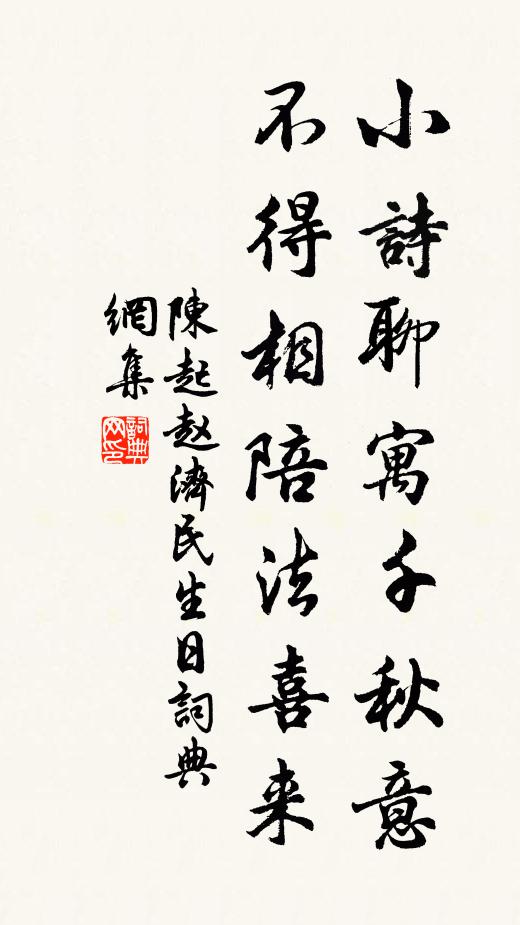 小詩聊寓千秋意
不得相陪法喜来
陳起赵濟民生日詞典
網集
詞典网印